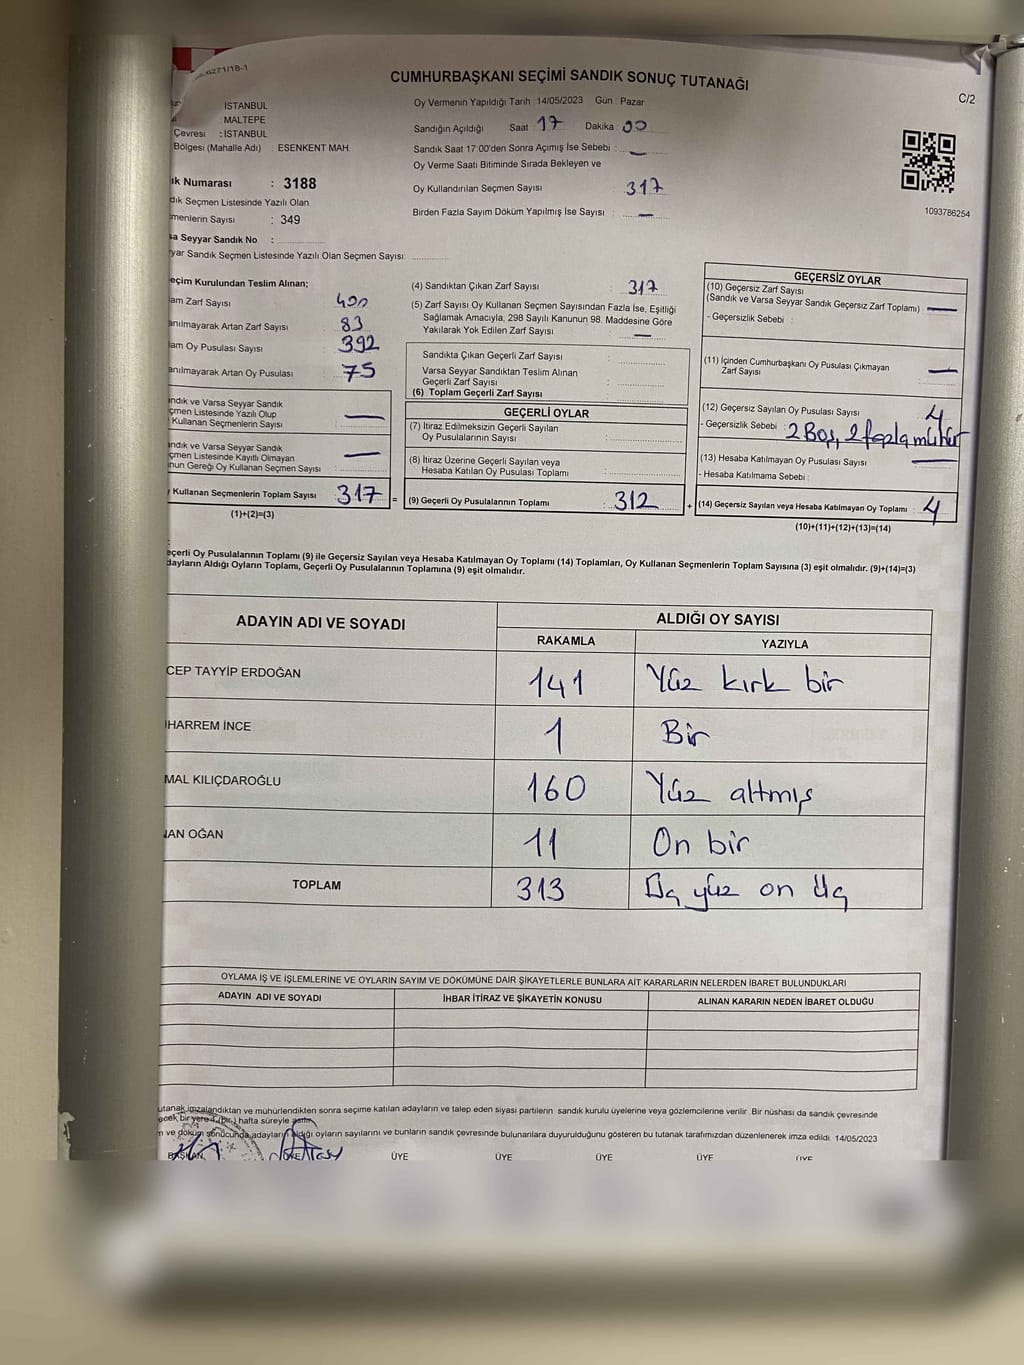 6271/18-1
CUMHURBAŞKANI SEÇİMİ SANDIK SONUÇ TUTANAĞI
C/2
İSTANBUL
MALTEPE
Çevresi : İSTANBUL
Bölgesi (Mahalle Adı) : ESENKENT MAH.
Oy Vermenin Yapıldığı Tarih :14/05/2023 Gün : Pazar
Sandığın Açıldığı Saat 17 Dakika : 00
Sandık Saat 17:00'den Sonra Açımış İse Sebebi : —
Oy Verme Saati Bitiminde Sırada Bekleyen ve
Oy Kullandırılan Seçmen Sayısı 317
Birden Fazla Sayım Döküm Yapılmış İse Sayısı : —
1093786254
ık Numarası : 3188
dık Seçmen Listesinde Yazılı Olan
menlerin Sayısı : 349
sa Seyyar Sandık No :
yar Sandık Seçmen Listesinde Yazılı Olan Seçmen Sayısı:
eçim Kurulundan Teslim Alınan;
am Zarf Sayısı 400
anılmayarak Artan Zarf Sayısı 83
lam Oy Pusulası Sayısı 392
anılmayarak Artan Oy Pusulası 75
andık ve Varsa Seyyar Sandık
çmen Listesinde Yazılı Olup
Kullanan Seçmenlerin Sayısı —
andık ve Varsa Seyyar Sandık
çmen Listesinde Kayıtlı Olmayan
nun Gereği Oy Kullanan Seçmen Sayısı —
Kullanan Seçmenlerin Toplam Sayısı 317 =
(1)+(2)=(3)
(4) Sandıktan Çıkan Zarf Sayısı : 317
(5) Zarf Sayısı Oy Kullanan Seçmen Sayısından Fazla İse, Eşitliği
Sağlamak Amacıyla, 298 Sayılı Kanunun 98. Maddesine Göre
Yakılarak Yok Edilen Zarf Sayısı : —
Sandıkta Çıkan Geçerli Zarf Sayısı :
Varsa Seyyar Sandıktan Teslim Alınan
Geçerli Zarf Sayısı :
(6) Toplam Geçerli Zarf Sayısı :
GEÇERLİ OYLAR
(7) İtiraz Edilmeksizin Geçerli Sayılan
Oy Pusulalarının Sayısı :
(8) İtiraz Üzerine Geçerli Sayılan veya
Hesaba Katılan Oy Pusulası Toplamı :
(9) Geçerli Oy Pusulalarının Toplamı : 312 +
GEÇERSİZ OYLAR
(10) Geçersiz Zarf Sayısı
(Sandık ve Varsa Seyyar Sandık Geçersiz Zarf Toplamı) : —
- Geçersizlik Sebebi :
(11) İçinden Cumhurbaşkanı Oy Pusulası Çıkmayan
Zarf Sayısı : —
(12) Geçersiz Sayılan Oy Pusulası Sayısı 4
- Geçersizlik Sebebi : 2 Boş, 2 fazla mühür
(13) Hesaba Katılmayan Oy Pusulası Sayısı —
- Hesaba Katılmama Sebebi :
(14) Geçersiz Sayılan veya Hesaba Katılmayan Oy Toplamı : 4
(10)+(11)+(12)+(13)=(14)
eçerli Oy Pusulalarının Toplamı (9) ile Geçersiz Sayılan veya Hesaba Katılmayan Oy Toplamı (14) Toplamları, Oy Kullanan Seçmenlerin Toplam Sayısına (3) eşit olmalıdır. (9)+(14)=(3)
dayların Aldığı Oyların Toplamı, Geçerli Oy Pusulalarının Toplamına (9) eşit olmalıdır.
ADAYIN ADI VE SOYADI ALDIĞI OY SAYISI
RAKAMLA YAZIYLA
CEP TAYYİP ERDOĞAN 141 Yüz kırk bir
HARREM İNCE 1 Bir
MAL KILIÇDAROĞLU 160 Yüz altmış
NAN OĞAN 11 On bir
TOPLAM 313 Üç yüz on üç
OYLAMA İŞ VE İŞLEMLERİNE VE OYLARIN SAYIM VE DÖKÜMÜNE DAİR ŞİKAYETLERLE BUNLARA AİT KARARLARIN NELERDEN İBARET BULUNDUKLARI
ADAYIN ADI VE SOYADI İHBAR İTİRAZ VE ŞİKAYETİN KONUSU ALINAN KARARIN NEDEN İBARET OLDUĞU
utanak imzalandıktan ve mühürlendikten sonra seçime katılan adayların ve talep eden siyasi partilerin sandık kurulu üyelerine veya gözlemcilerine verilir. Bir nüshası da sandık çevresinde
ecek bir yere 1 (bir) hafta süreyle asılır.
m ve döküm sonucunda adayların aldığı oyların sayılarını ve bunların sandık çevresinde bulunanlara duyurulduğunu gösteren bu tutanak tarafımızdan düzenlenerek imza edildi. 14/05/2023
BAŞKAN ÜYE ÜYE ÜYE ÜYE ÜYE